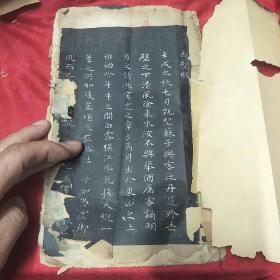 赤壁賦
壬戌之秋七月既望蘇子與客泛舟遊於赤
壁之下清風徐來水波不興舉酒屬客誦明
月之詩歌窈窕之章少焉月出於東山之上
徘徊於斗牛之間白露橫江水光接天縱一
葦之所如凌萬頃之茫然
如馮虛御
風而